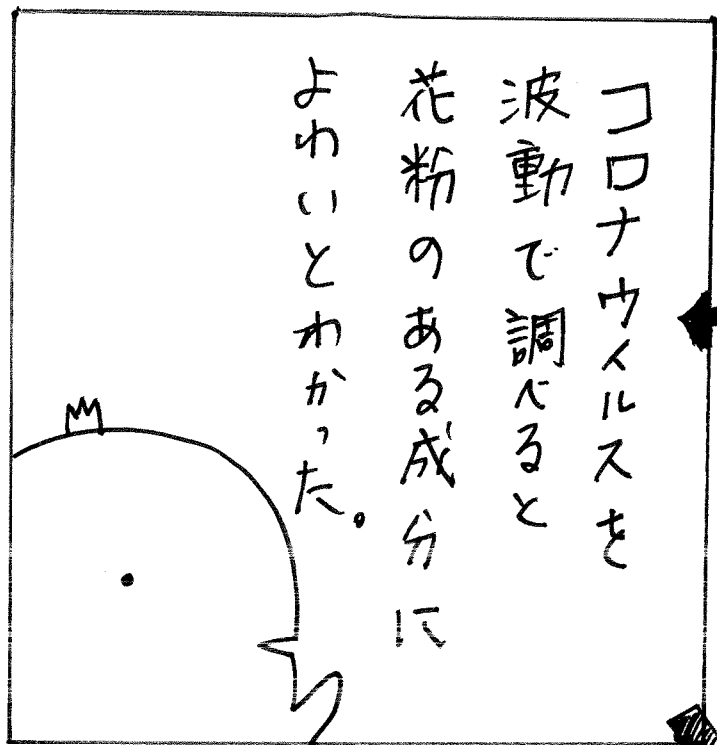 コロナウィルスを
波動で調べると
花粉のある成分に
よわいとわかった。